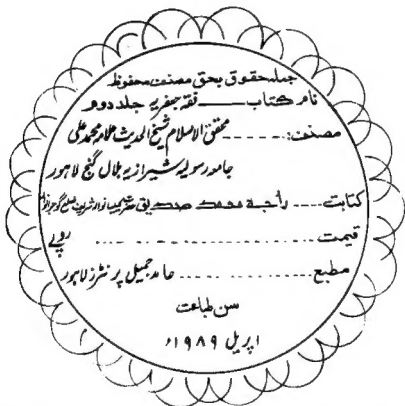 جملہ حقوق بحق مصنف محفوظ
نام کتاب ــــــ فقہ جعفریہ جلد دوم
مصنف: ------- محقق الاسلام شیخ الحدیث علامہ محمد علی
جامعہ رسولیہ شیرازیہ بلال گنج لاہور
کتابت ---- راجہ محمد صدیق حضرت کیلیانوالہ شریف ضلع گوجرانوالہ
قیمت .................... روپے
مطبع ............ حامد جمیل پرنٹرز لاہور
سن طباعت
اپریل ۱۹۸۹ء